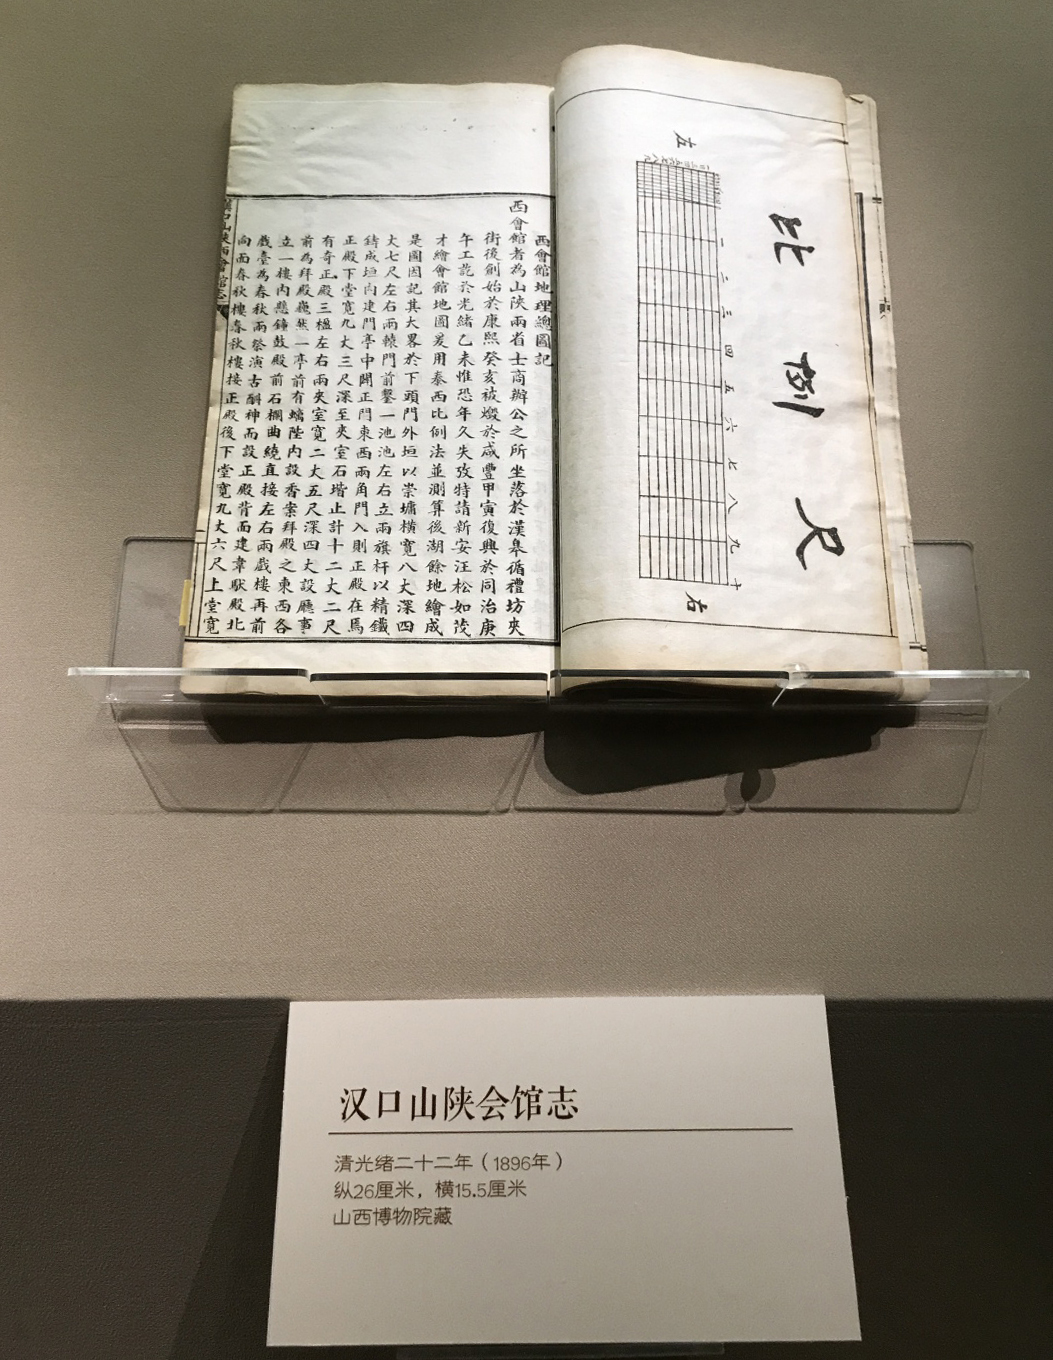 比例尺
左
一
二
三
四
五
六
七
八
九
十
右
西會館地理總圖記
西會館者為山陝兩省士商辦公之所坐落於漢皋循禮坊夾
街後創始於康熙癸亥被燬於咸豐甲寅復興於同治庚
午工訖於光緒乙未惟恐年久失攷特請新安汪松如茂
才繪會館地圖爰用泰西比例法並測算後湖餘地繪成
是圖因記其大畧於下頭門外垣以崇墉橫寬八丈深四
丈七尺左右兩轅門前鑿一池池左右立兩旗杆以精鐵
鑄成垣內建門亭中開正門東西兩角門入則正殿在焉
正殿下堂寬九丈三尺深至夾室石堦止計十二丈二尺
有奇正殿三楹左右兩夾室寬二丈五尺深四丈設廳事
前為拜殿巍然一亭前有螭陛內設香案拜殿之東西各
立一樓內懸鐘鼓殿前石欄曲繞直接左右兩戲樓再前
戲臺為春秋兩祭演古酬神而設正殿背面建韋馱殿北
向面春秋樓春秋樓接正殿後下堂寬九丈六尺上堂寬
漢口山陝西會館志
汉口山陕会馆志
清光绪二十二年（1896年）
纵26厘米，横15.5厘米
山西博物院藏